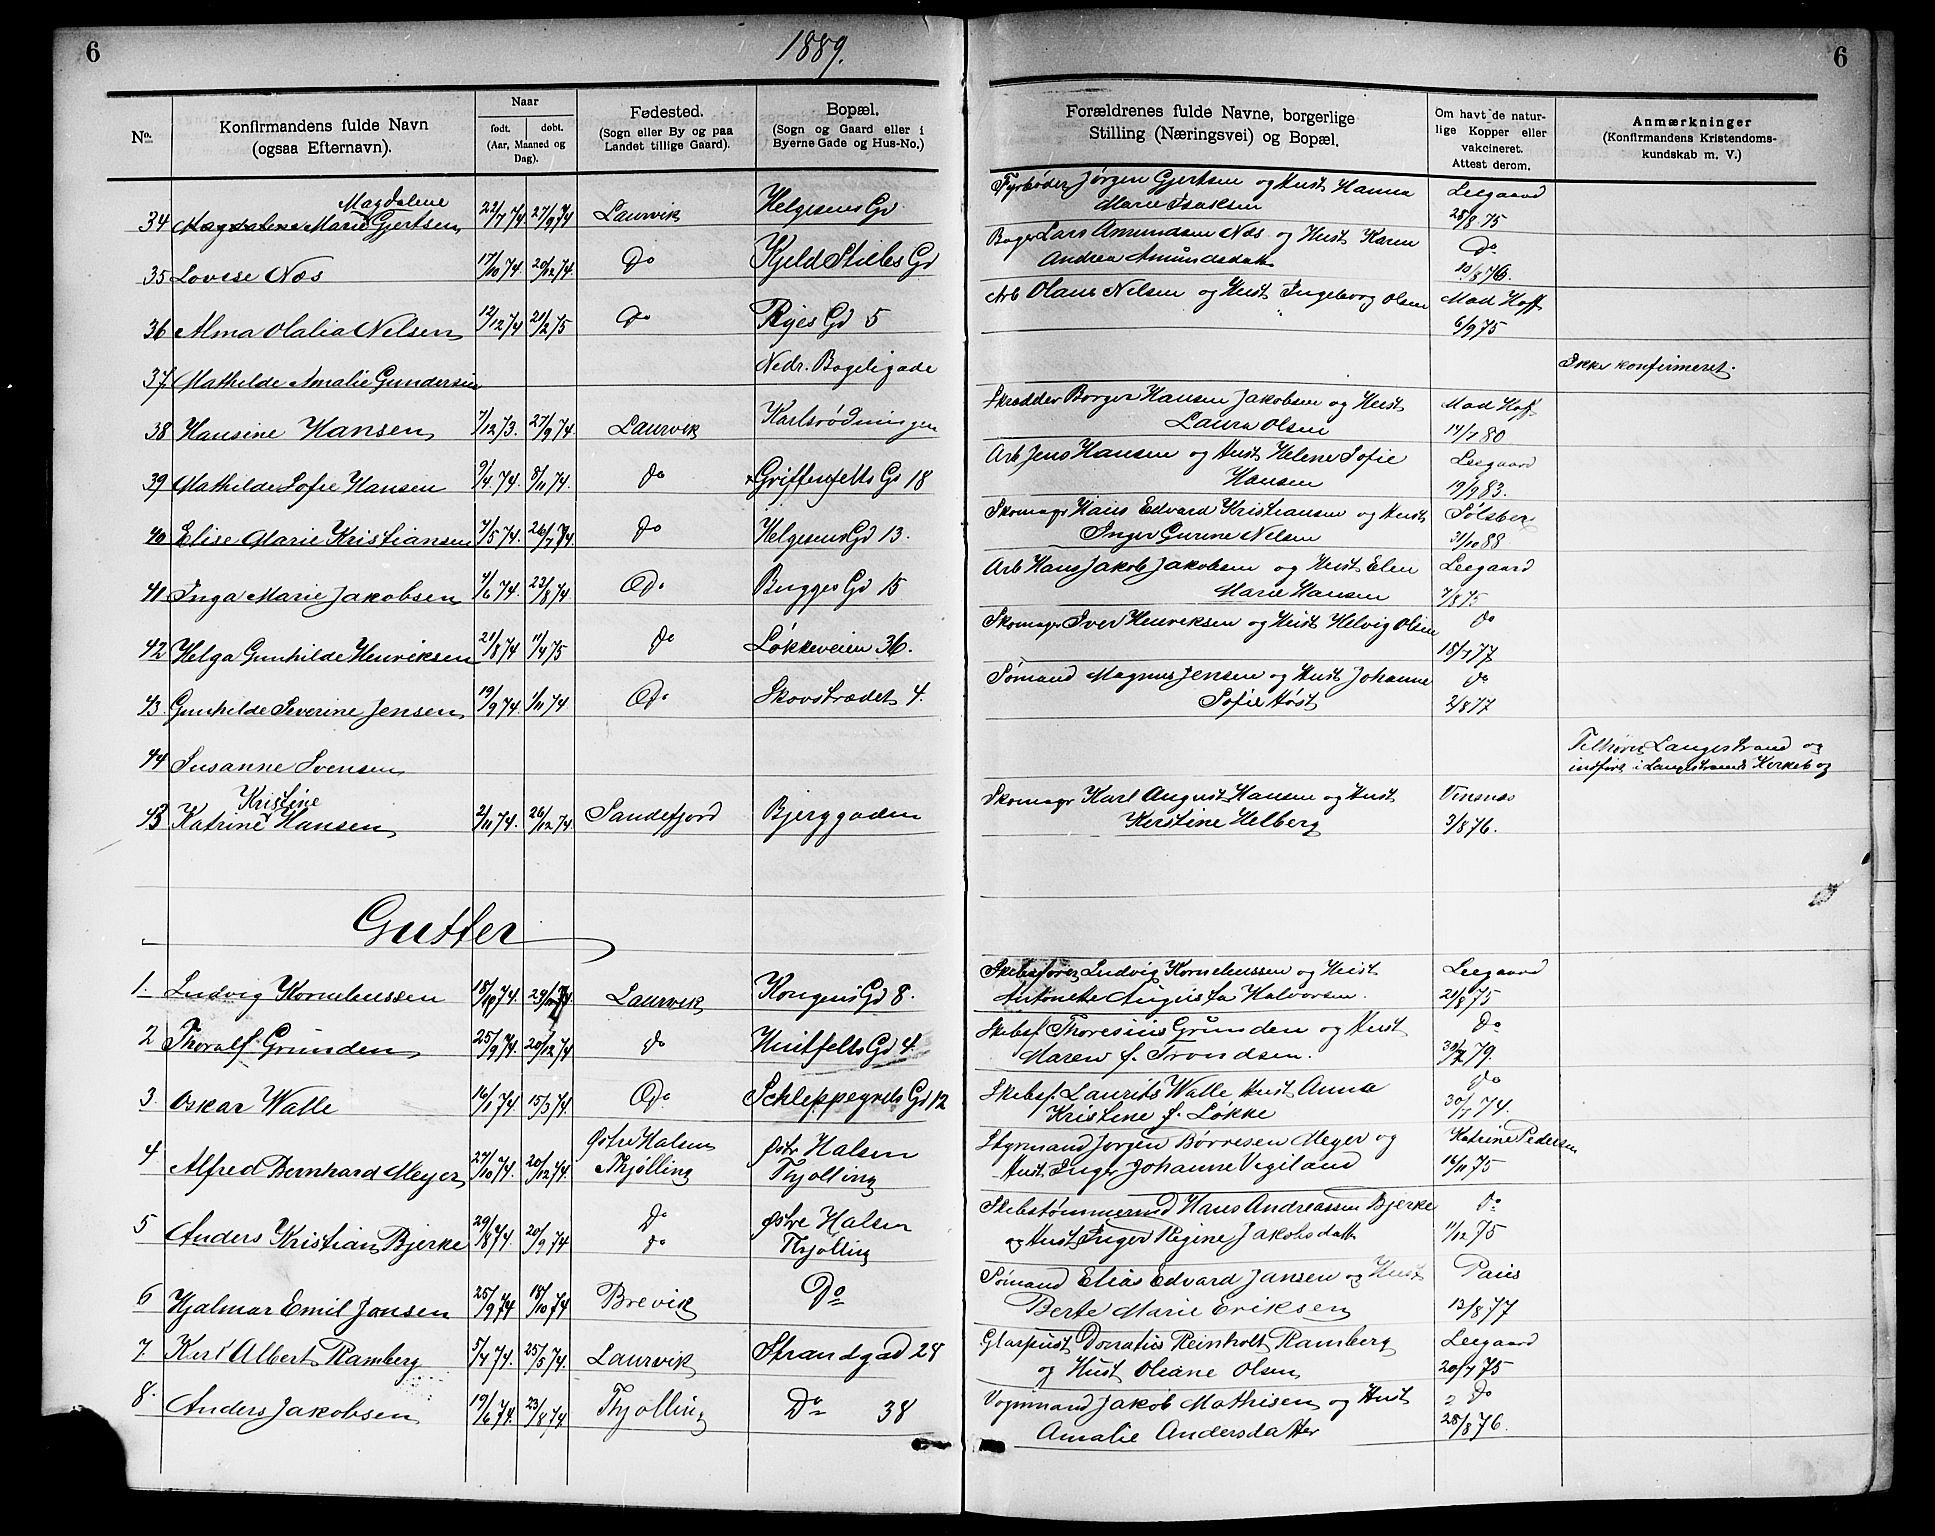 6
1889.
6
No.
Konfirmandens fulde Navn
(ogsaa Efternavn).
Naar
født. dobt.
(Aar, Maaned og
Dag).
Fødested.
(Sogn eller By og paa
Landet tillige Gaard).
Bopæl.
(Sogn og Gaard eller i
Byerne Gade og Hus-No.)
Forældrenes fulde Navne, borgerlige
Stilling (Næringsvei) og Bopæl.
Om havt de natur-
lige Kopper eller
vakcineret.
Attest derom.
Anmærkninger
(Konfirmandens Kristendoms-
kundskab m. V.)
Magdalene
34 Magdalene Marie Gjertsen 22/7 74 27/9 74 Laurvik Helgesens Gd
Fyrbøder Jørgen Gjertsen og Hust Hanna Leegaard
Marie Isaksen 28/8 75
35 Lovise Næs 17/10 74. 20/12 74. Do Kjeld Stiebs Gd
Bager Lars Amundsen Næs og Hust Karen Do
Andrea Amundsdatt 10/8 76.
36 Alma Olalia Nelsen 12/12 74 21/2 75 Do Ryes Gd 5
Arb Olaus Nelsen og Hust Ingeborg Olsen Mad Hoff
6/9 75
37 Mathilde Amalie Gundersen Nedr. Bøgeligade Ikke konfirmeret.
38 Hansine Hansen 7/12 73. 27/9 74 Laurvik Karlsrødningen
Skrædder Borger Hansen Jakobsen og Hust Mad Hoff
Laura Olsen 14/7 80
39 Mathilde Sofie Hansen 9/4 74. 8/11 74. do Griffenfelts Gd 18
Arb Jens Hansen og Hust Helene Sofie Leegaard
Hansen 19/9 83.
40 Elise Marie Kristiansen 7/5 74. 26/7 74. do Helgesens Gd 13.
Skomagr Hans Edvard Kristiansen og Hust Sølsber
Inger Gurine Nelsen 31/10 88
41 Inga Marie Jakobsen 4/6 74. 23/8 74 Do Bugges Gd 15
Arb Hans Jakob Jakobsen og Hust Elen Leegaard
Marie Hansen 7/8 75
42 Helga Gunhilde Henriksen 21/8 74 11/4 75 do Løkkeveien 36.
Skomagr Iver Henriksen og Hust Helvig Olsen do
18/7 77
43. Gunhilde Severine Jensen 19/9 74. 1/11 74 Do Skovstrædet 4.
Sømand Magnus Jensen og Hust Johanne do
Sofie Høst 2/8 77
44 Susanne Svensen
Tilhører Langestrand og
indført i Langestrands Kirkebog
Kristine
45 Katrine Hansen 2/11 74. 26/12 74 Sandefjord Bjerggaden
Skomagr Karl August Hansen og Hust Vinsnes
Kirstine Helberg 3/8 76.
Gutter
1. Ludvig Korneliussen 18/10 74. Laurvik Kongens Gd 8.
Skibsfører Ludvig Kornelinssen og Hust Leegaard
Antonette Augusta Halvorsen. 21/8 75
2 Thoralf Grunden 25/9 74. 20/12 74 do Huitfelts Gd 4.
Skibsf. Thoresius Grunden og Hust Do
Maren f. Trondsen. 79.
3. Oskar Walle 16/1 74 15/3 74 Do Schleppegrels Gd 12
Skibsf. Laurits Walle Hust Anna do
Kristine f. Løkke 30/7 74.
4 Alfred Bernhard Meyer 27/10 74. 20/12 74. Østre Halsen Thjølling Østr Halsen Thjølling
Styrmand Jørgen Børresen Meyer og Katrine Pedersen
Hust. Inger Johanne Vegiland 16/11 75
5 Anders Kristian Bjerke 29/8 74. 20/9 74 Do do Østre Halsen Thjølling
Skibstømmermd Hans Andreassen Bjerke Do
og Hust Inger Regine Jakobsdatt 11/12 75
6 Hjalmar Emil Jansen 25/9 74 18/10 74 Brevik Do
Sømand Elias Edvard Jansen og Hust Paus
Berte Marie Eriksen 13/8 77
7. Karl Albert Ramberg 3/4 74. 25/5 74. Laurvik Strandgad 28
Glarpust Donatus Reinholt Ramberg Leegaard
og Hust Oleane Olsen 20/7 75
8. Anders Jakobsen 19/6 74. 23/8 74 Thjølling Do 38
Vognmand Jakob Mathisen og Hust Do
Amalie Andersdatter 28/8 76.